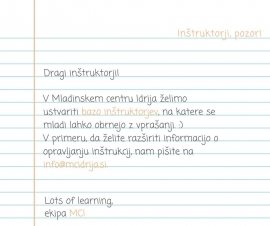 Inštruktorji, pozor!
Dragi inštruktorji!
V Mladinskem centru Idrija želimo
ustvariti bazo inštruktorjev, na katere se
mladi lahko obrnejo z vprašanji. :)
V primeru, da želite razširiti informacijo o
opravljanju inštrukcij, nam pišite na
info@mcidrija.si.
Lots of learning,
ekipa MCI